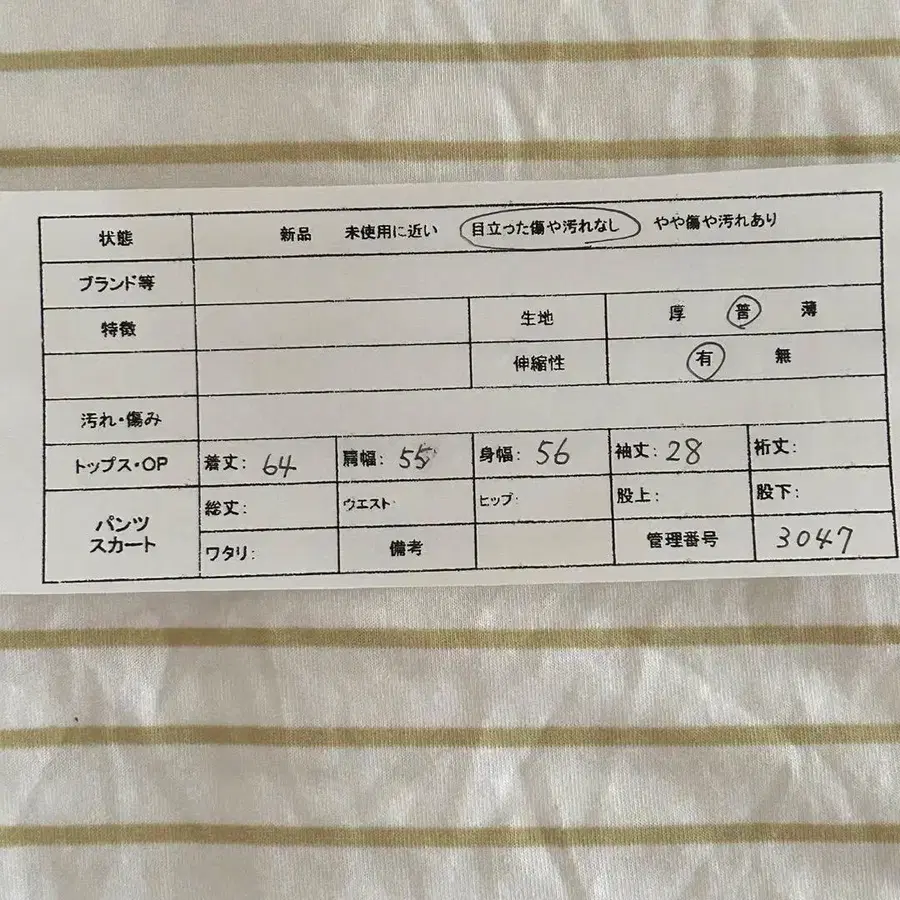 状態 新品 未使用に近い 目立った傷や汚れなし やや傷や汚れあり
ブランド等
特徴 生地 厚 普 薄
伸縮性 有 無
汚れ・傷み
トップス・OP 着丈: 64 肩幅: 55 身幅: 56 袖丈: 28 裄丈:
パンツ スカート 総丈: ウエスト: ヒップ: 股上: 股下:
ワタリ: 備考 管理番号 3047